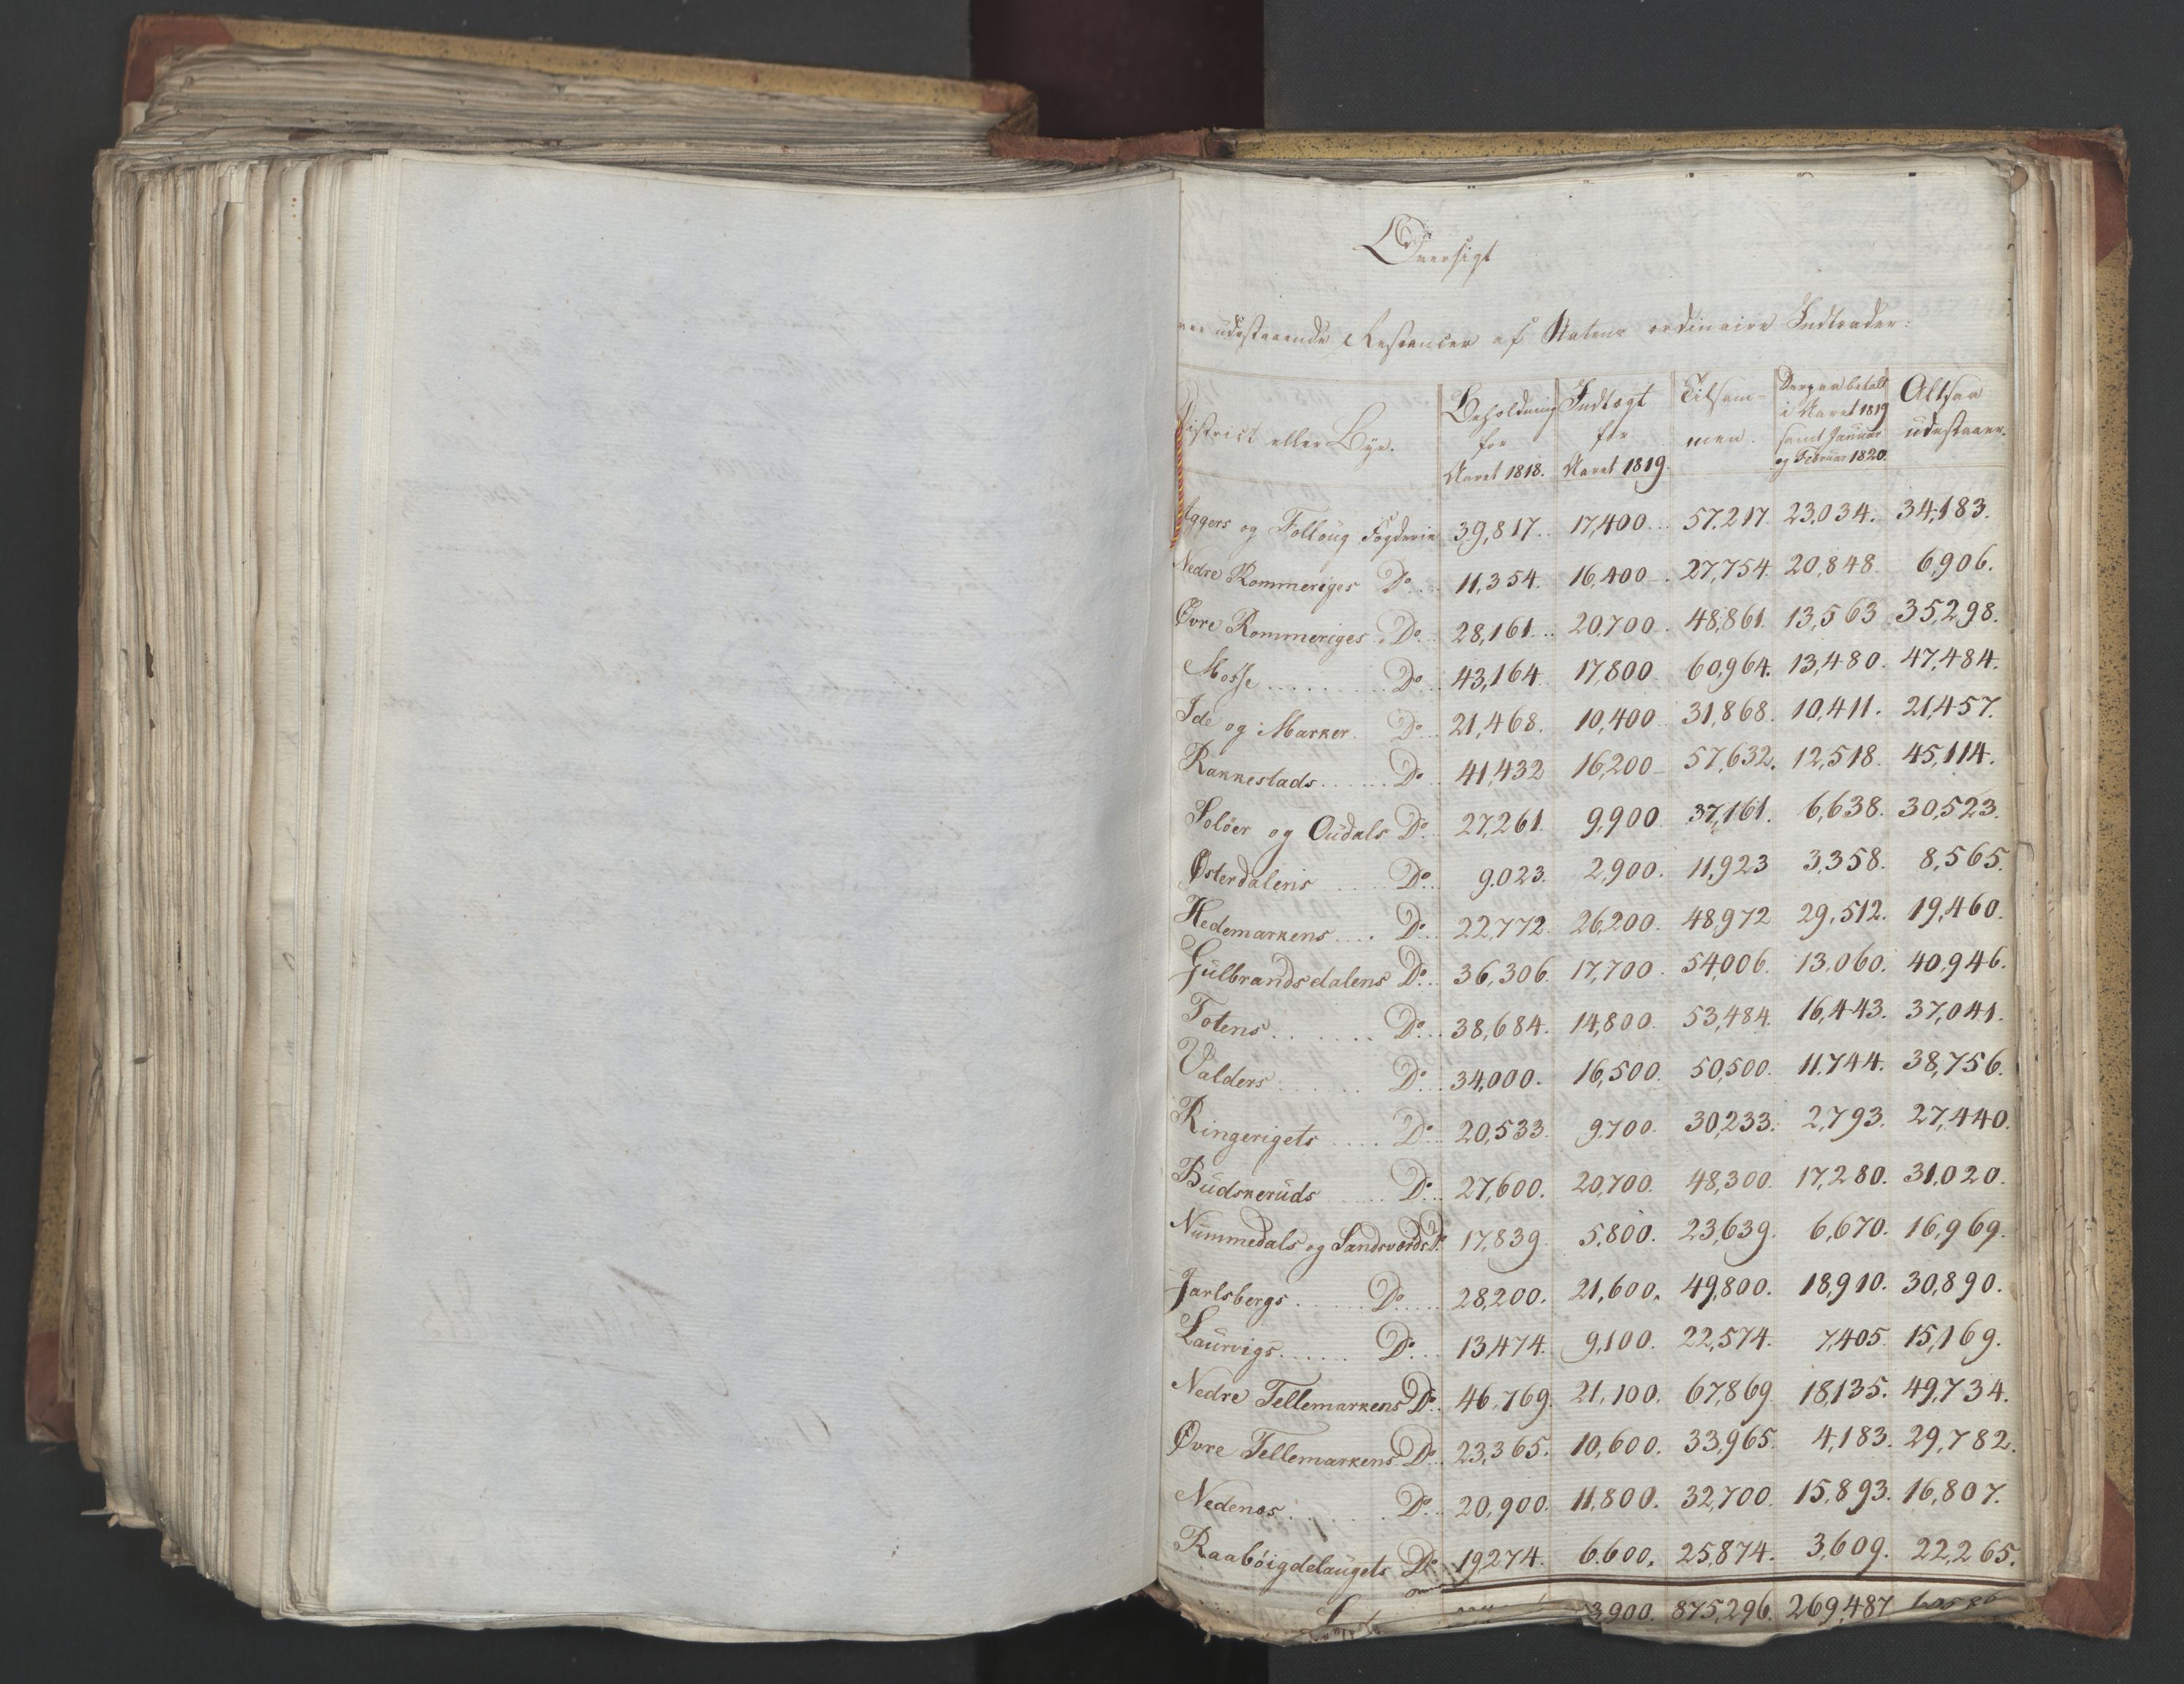 Oversigt
udestaaende Restancer af Statens ordinaire Indtræder:
District eller Bye. Beholdning for Aaret 1818. Indtægt for Aaret 1819. Tilsammen. Derpaa betalt i Aaret 1819 samt Januar og Februar 1820. Altsaa udestaaer.
Aggers og Folloug Fogderie 39,817. 17,400. 57,217. 23,034. 34,183.
Nedre Rommeriges Do. 11,354. 16,400. 27,754. 20,848. 6,906.
Øvre Rommeriges Do. 28,161. 20,700. 48,861. 13,563 35,298.
Mosse Do. 43,164. 17,800. 60,964. 13,480. 47,484.
Ide og Marker Do. 21,468. 10,400. 31,868. 10,411. 21,457.
Rakkestads Do. 41,432 16,200 57,632. 12,518. 45,114.
Soløer og Oudals Do. 27,261. 9,900. 37,161. 6,638. 30,523.
Østerdalens Do. 9,023. 2,900. 11,923 3,358. 8,565.
Hedemarkens Do. 22,772. 26,200. 48,972 29,512. 19,460.
Gulbrandsdalens Do. 36,306. 17,700. 54,006. 13,060. 40,946.
Totens Do. 38,684. 14,800. 53,484. 16,443. 37,041.
Valders Do. 34,000. 16,500. 50,500. 11,744. 38,756.
Ringerigets Do. 20,533. 9,700. 30,233. 2,793. 27,440.
Budskeruds Do. 27,600. 20,700. 48,300. 17,280. 31,020.
Nummedals og Sandsværds Do. 17,839 5,800. 23,639. 6,670. 16,969.
Jarlsbergs Do. 28,200. 21,600. 49,800. 18,910. 30,890.
Laurvigs Do. 13,474. 9,100. 22,574. 7,405. 15,169.
Nedre Tellemarkens Do. 46,769. 21,100. 67,869 18,135. 49,734.
Øvre Tellemarkens Do. 23,365. 10,600. 33,965. 4,183. 29,782.
Nedenæs Do. 20,900. 11,800. 32,700. 15,893. 16,807.
Raabøigdelaugets Do. 19,274. 6,600. 25,874. 3,609. 22,265.
3,900. 875,296. 269,487